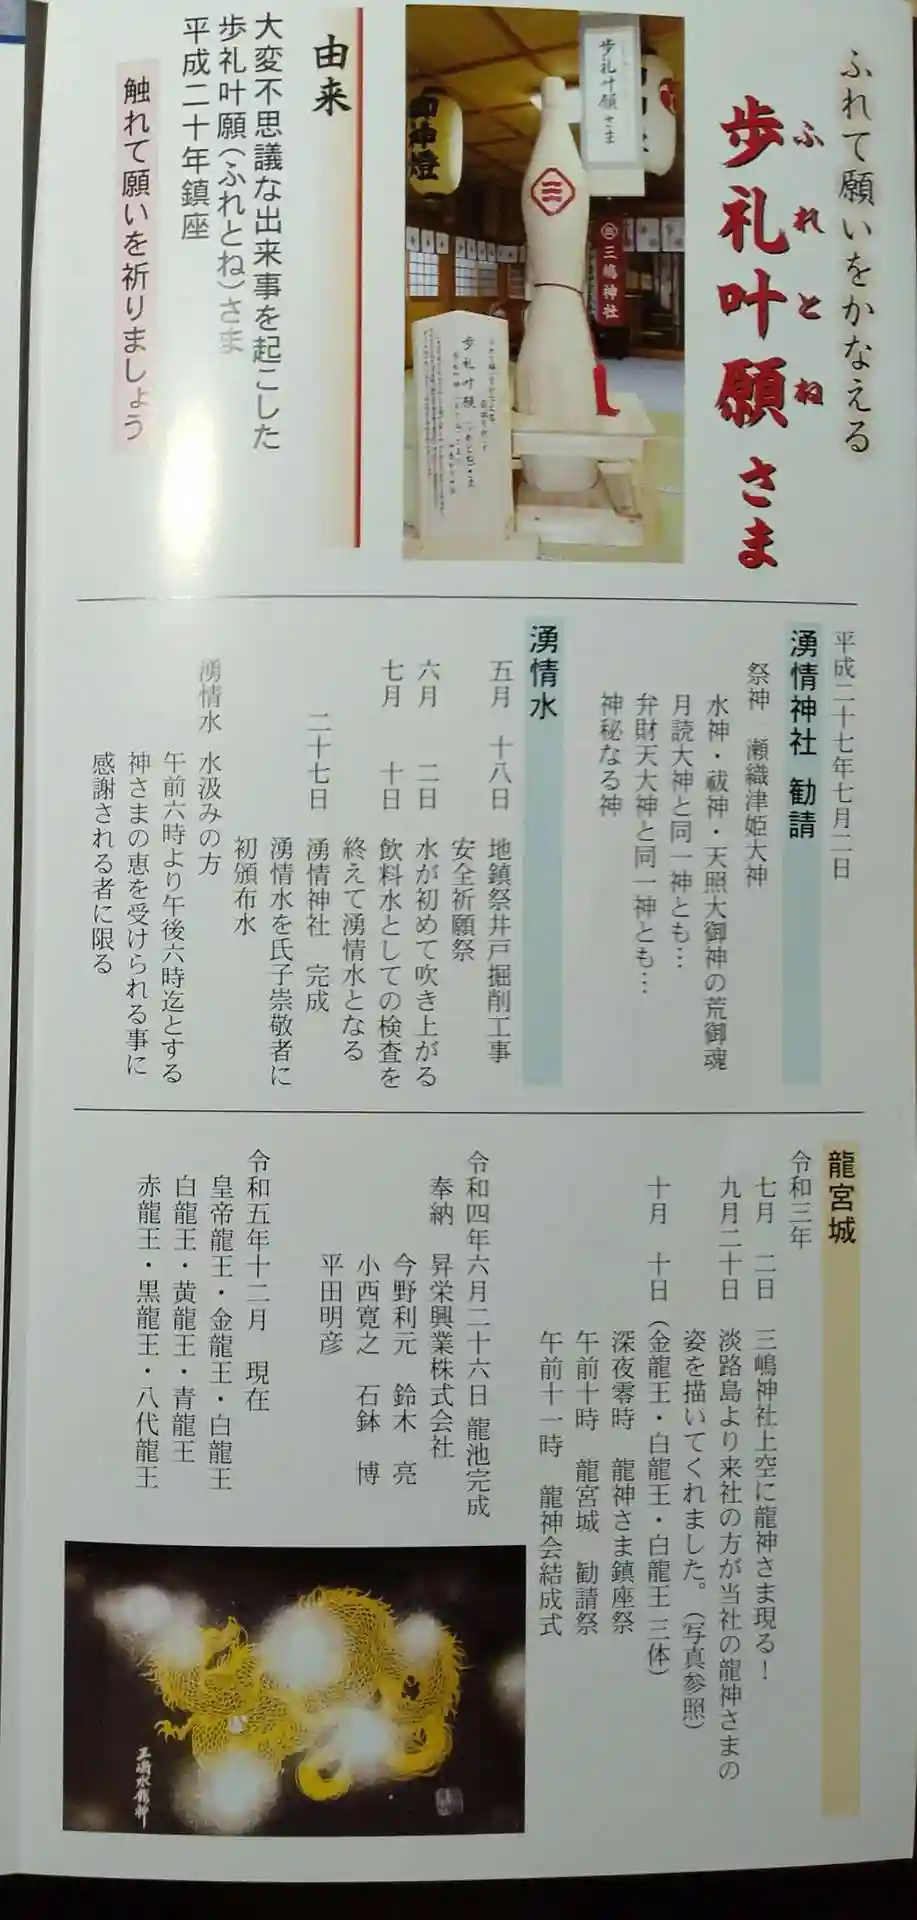 ふれて願いをかなえる
歩礼叶願さま
ふれとね
歩礼叶願さま
三嶋神社
御神燈
歩礼叶願
由来
大変不思議な出来事を起こした
歩礼叶願(ふれとね)さま
平成二十年鎮座
触れて願いを祈りましょう
平成二十七年七月二日
湧情神社 勧請
祭神 瀬織津姫大神
水神・祓神・天照大御神の荒御魂
月読大神と同一神とも…
弁財天大神と同一神とも…
神秘なる神
湧情水
五月 十八日 地鎮祭井戸掘削工事
安全祈願祭
六月 二日 水が初めて吹き上がる
七月 十日 飲料水としての検査を
終えて湧情水となる
二十七日 湧情神社 完成
湧情水を氏子崇敬者に
初頒布水
湧情水 水汲みの方
午前六時より午後六時迄とする
神さまの恵を受けられる事に
感謝される者に限る
龍宮城
令和三年
七月 二日 三嶋神社上空に龍神さま現る!
九月二十日 淡路島より来社の方が当社の龍神さまの
姿を描いてくれました。(写真参照)
十月 十日 (金龍王・白龍王・白龍王 三体)
深夜零時 龍神さま鎮座祭
午前十時 龍宮城 勧請祭
午前十一時 龍神会結成式
令和四年六月二十六日 龍池完成
奉納 昇栄興業株式会社
今野利元 鈴木 亮
小西寛之 石鉢 博
平田明彦
令和五年十二月 現在
皇帝龍王・金龍王・白龍王
白龍王・黄龍王・青龍王
赤龍王・黒龍王・八代龍王